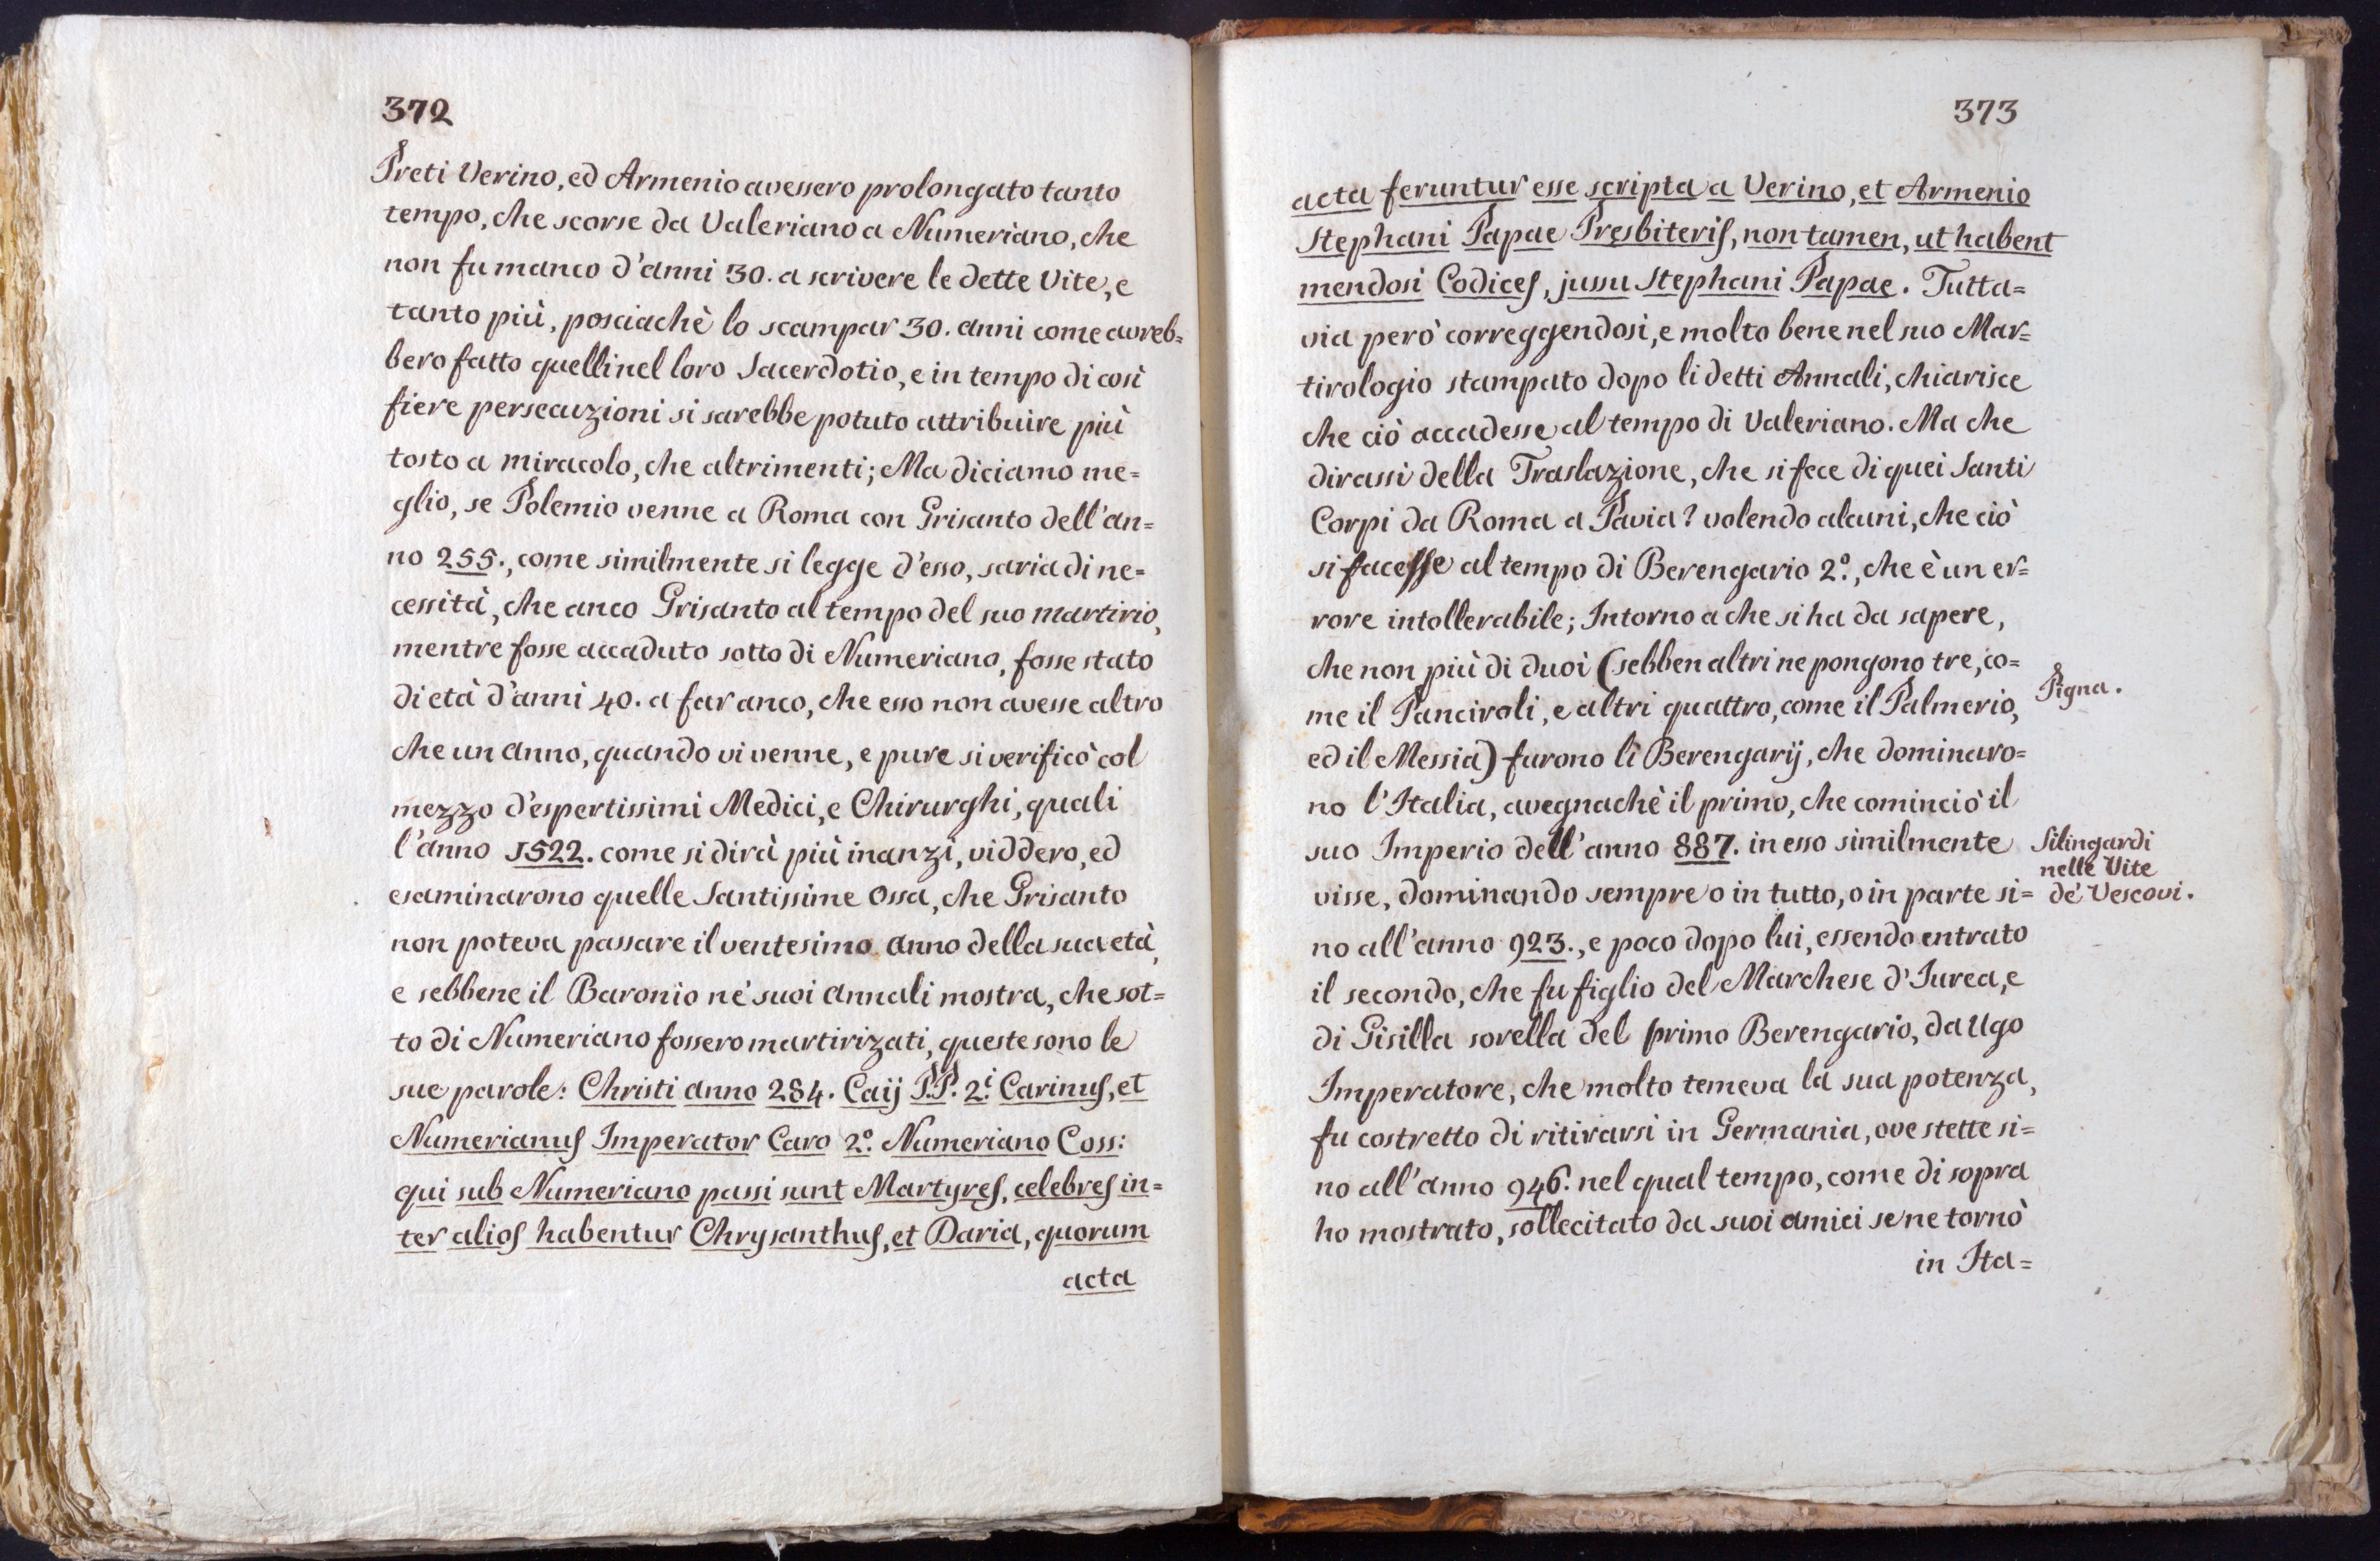 372
Preti Verino, ed Armenio avessero prolongato tanto
tempo, che scorse da Valeriano a Numeriano, che
non fu manco d'anni 30. a scrivere le dette Vite, e
tanto più, posciachè lo scampar 30. anni come avreb=
bero fatto quelli nel loro Sacerdotio, e in tempo di così
fiere persecuzioni si sarebbe potuto attribuire più
tosto a miracolo, che altrimenti; Ma diciamo me=
glio, se Polemio venne a Roma con Grisanto dell'an=
no 255., come similmente si legge d'esso, saria di ne=
cessità, che anco Grisanto al tempo del suo martirio,
mentre fosse accaduto sotto di Numeriano, fosse stato
di età d'anni 40. a far anco, che esso non avesse altro
che un anno, quando vi venne, e pure si verificò col
mezzo d'espertissimi Medici, e Chirurghi, quali
l'anno 1522. come si dirà più inanzi, viddero, ed
esaminarono quelle Santissime Ossa, che Grisanto
non poteva passare il ventesimo anno della sua età,
e sebbene il Baronio ne' suoi annali mostra, che sot=
to di Numeriano fossero martirizati, queste sono le
sue parole: Christi anno 284. Caij P.P. 2.i Carinus, et
Numerianus Imperator Caro 2.o Numeriano Coss:
qui sub Numeriano passi sunt Martyres, celebres in=
ter alios habentur Chrysanthus, et Daria, quorum
acta
373
acta feruntur esse scripta a Verino, et Armenio
Stephani Papae Pręsbiteris, non tamen, ut habent
mendosi Codices, jussu Stephani Papae. Tutta=
via però correggendosi, e molto bene nel suo Mar=
tirologio stampato dopo li detti Annali, chiarisce
che ciò accadesse al tempo di Valeriano. Ma che
dirassi della Traslazione, che si fece di quei Santi
Corpi da Roma a Pavia? volendo alcuni, che ciò
si facesse al tempo di Berengario 2.o, che è un er=
rore intollerabile; Intorno a che si ha da sapere,
che non più di duoi (sebben altri ne pongono tre, co=
me il Panciroli, e altri quattro, come il Palmerio,
Pigna.
ed il Messia) furono li Berengarij, che dominaro=
no l'Italia, avegnachè il primo, che cominciò il
suo Imperio dell'anno 887. in esso similmente
Silingardi
nelle Vite
de' Vescovi.
visse, dominando sempre o in tutto, o in parte si=
no all'anno 923., e poco dopo lui, essendo entrato
il secondo, che fu figlio del Marchese d'Iurea, e
di Gisilla sorella del primo Berengario, da Ugo
Imperatore, che molto temeva la sua potenza,
fu costretto di ritirarsi in Germania, ove stette si=
no all'anno 946. nel qual tempo, come di sopra
ho mostrato, sollecitato da suoi amici se ne tornò
in Ita=